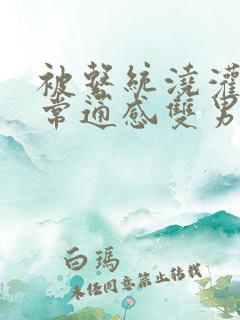 被繫統澆灌
常通感雙男
白瑪
未经同意禁止转载